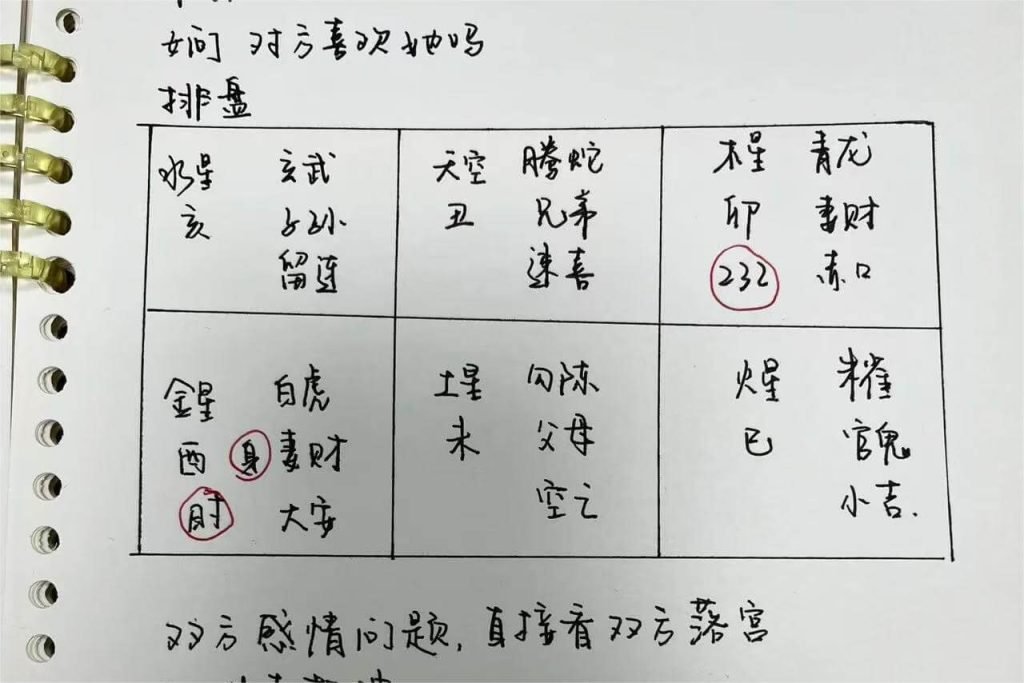 女问 对方喜欢她吗
排盘
水星 玄武 天空 螣蛇 木星 青龙
亥 子孙 丑 兄弟 卯 妻财
留连 速喜 232 赤口
金星 白虎 土星 勾陈 火星 朱雀
酉 身 妻财 未 父母 巳 官鬼
时 大安 空亡 小吉.
双方感情问题,直接看双方落宫